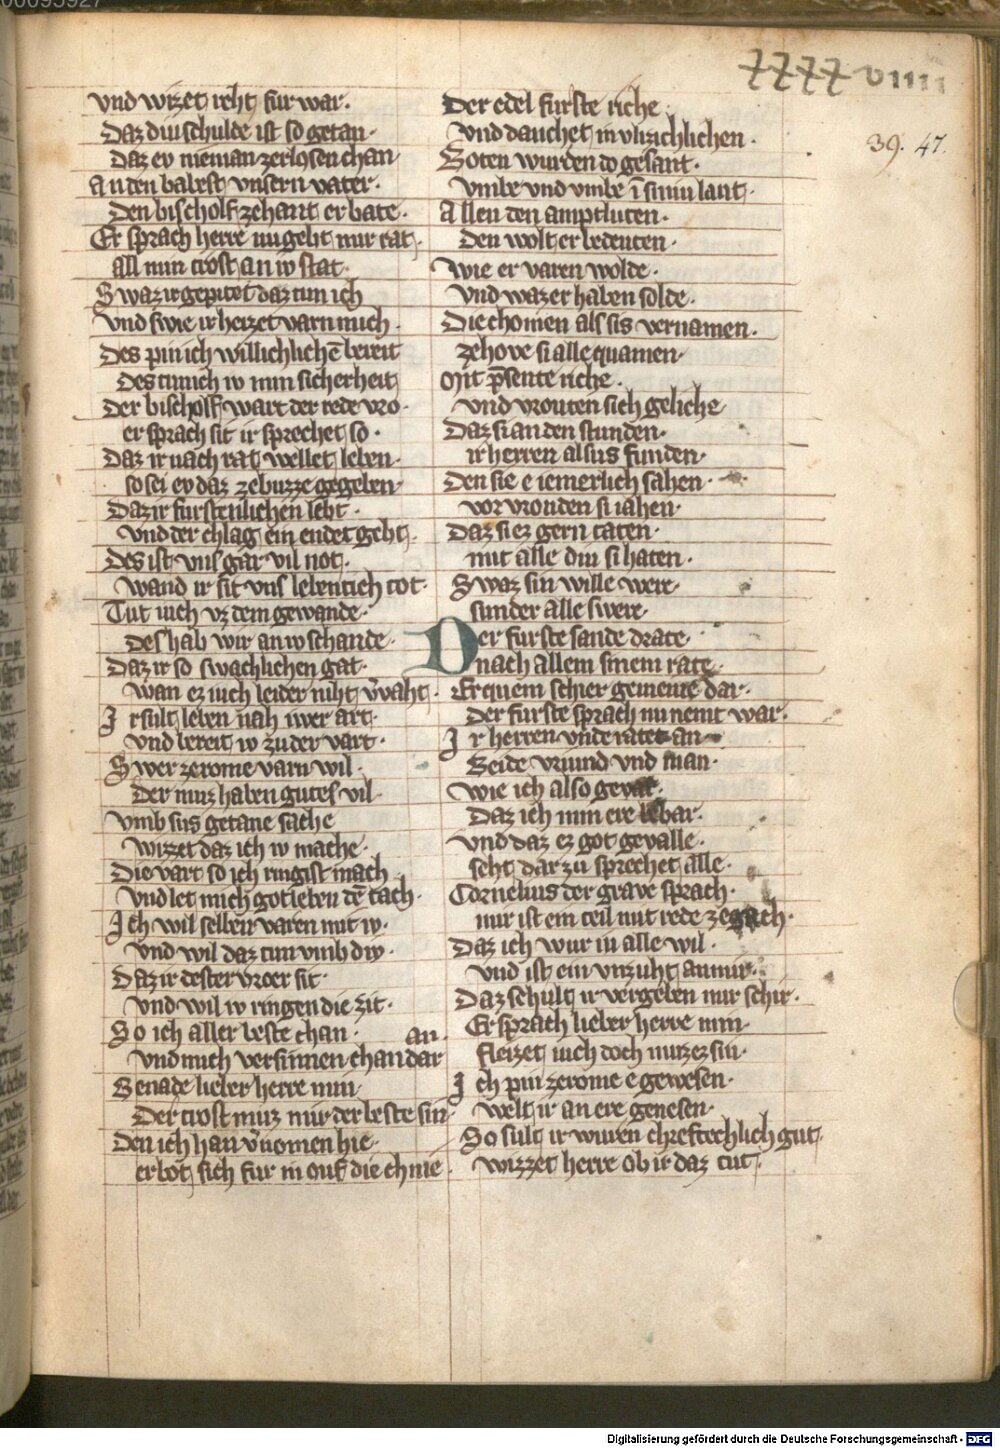 00095927
XXXX VIIII
39. 47.
vnd wizzet reht fur war·
Daz diu schulde ist so getan·
Daz ev nieman zerlosen chan
An den babest vnsern vater·
Den bischolf zehant er bate·
Er sprach herre nu gebt mir rat·
all min trost an iv stat·
Swaz ir gepietet daz tun ich
Vnd swie ir heizet varn mich·
Des pin ich willichlichē bereit
Des tun ich iv min sicherheit
Der bischolf wart der rede vro·
er sprach sit ir sprechet so·
Daz ir nach rat wellet leben·
so sei ev daz ze buzze gegeben·
Daz ir furstenlichen lebt·
vnd der chlag ein endet gebt·
Des ist vns gar vil not·
wand ir sit vns lebentich tot·
Tut iuch vz dem gewande·
Des hab wir an iv schande·
Daz ir so swachlichen gat·
wan ez iuch leider niht v̄vaht·
Ir sult leben nah iwer art·
vnd bereit iv zu der vart·
Swer ze rome varn wil·
Der muz haben gutes vil·
Vmb sus getane sache
wizzet daz ich iv mache·
Die vart so ich ringist mach
Vnd let mich got leben dē tach·
Ich wil selber varen mit iv·
vnd wil daz tun vmb div·
Daz ir dester vroer sit·
vnd wil iv ringen die zit·
So ich aller beste chan· an·
vnd mich versinnen chan dar
Genade lieber herre min·
Der trost muz mir der beste sin·
Den ich han v̄nomen hie·
er bot sich fur in ouf die chnie·
Der edel furste riche·
vnd dauchet in vlizichlichen·
Boten wurden do gesant·
vmbe vnd vmbe ī sinui lant·
Allen den amptluten·
Den wolt er bedeuten·
wie er varen wolde·
Vnd waz er haben solde·
Die chomen als sis vernamen·
zehove si alle quamen·
Mit p̄sente riche·
vnd vrouten sich geliche
Daz si an den stunden·
ir herren alsus funden·
Den sie e iemerlich sahen·
vor vrouden si iahen·
Daz si ez gern taten·
mit alle diu si haten·
Swaz sin wille were·
sunder alle swere·
Der furste sande drate·
nach allem sinem rate·
Er quem schier gemeine dar·
Der furste sprach nu nemt war·
Ir herren vnde ratet an·
Beide vriund vnd man·
wie ich also gevar·
Daz ich min ere bebar·
vnd daz ez got gevalle·
seht dar zu sprechet alle·
Cornelius der grave sprach·
mir ist ein teil mit rede ze gach·
Daz ich wur iu alle wil·
Vnd ist ein vnzuht an mir·
Daz schult ir vergeben mir schir·
Er sprach lieber herre min·
fleizet iuch doch muz ez sin·
Ich pin ze rome e gewesen·
welt ir an ere genesen·
So sult ir wuren chreftechlich gut·
wizzet herre ob ir daz tut·
Digitalisierung gefördert durch die Deutsche Forschungsgemeinschaft - DFG